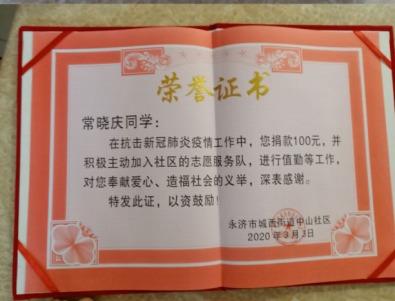 荣誉证书
常晓庆同学：
在抗击新冠肺炎疫情工作中，您捐款100元，并
积极主动加入社区的志愿服务队，进行值勤等工作，
对您奉献爱心、造福社会的义举，深表感谢。
特发此证，以资鼓励！
永济市城西街道中山社区
2020年3月3日